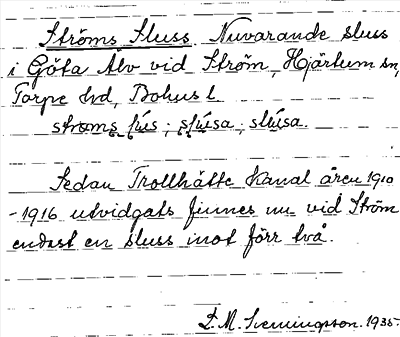 Ströms Sluss Nuvarande sluss
i Göta Älv vid Ström, Hjärtum sn,
Torpe hd, Bohus l.
ströms
Sedan Trollhätte Kanal åren 1910
-1916 utvidgats finnes nu vid Ström
endast en sluss mot förr två.
M. 1935.